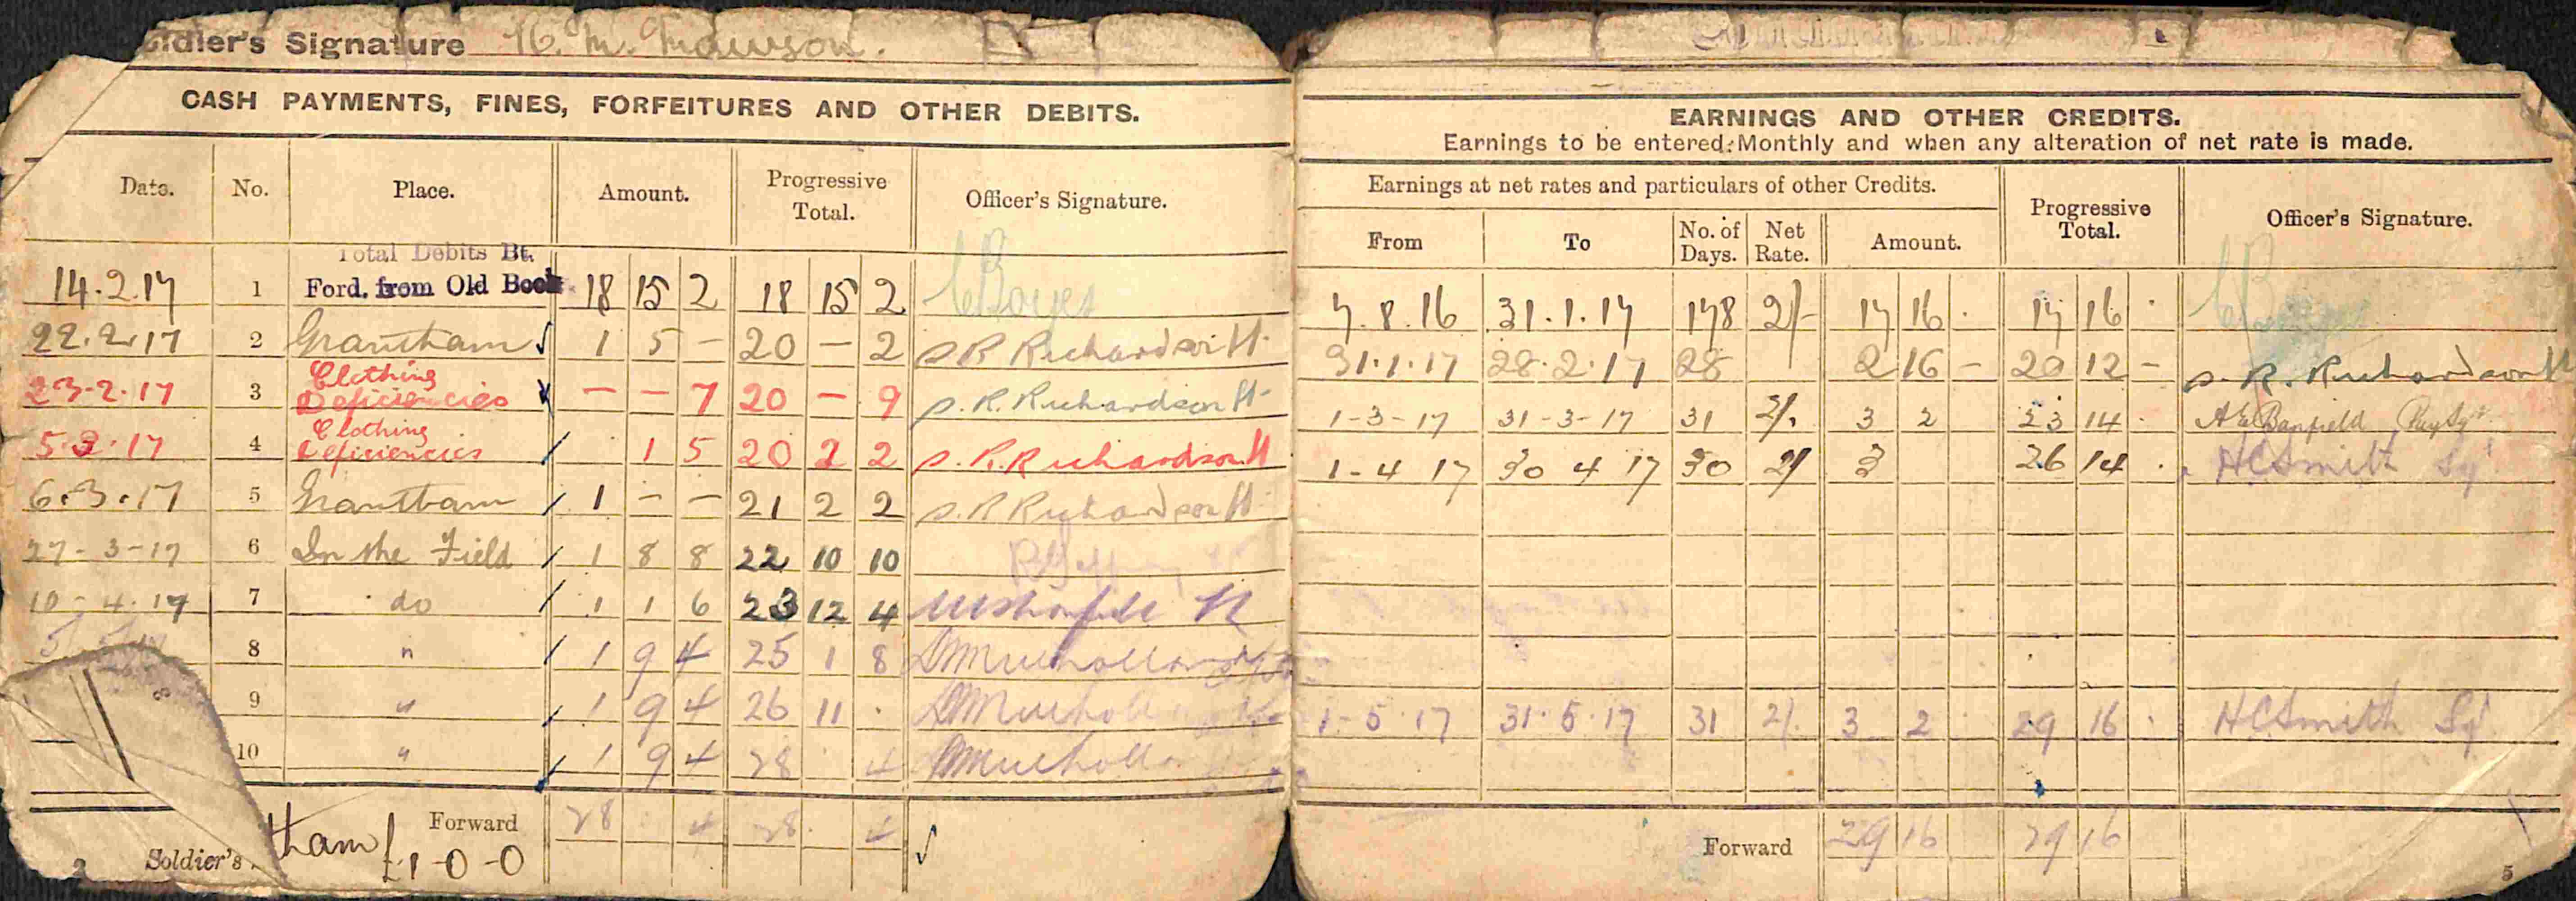 Soldier's Signature H. M. Mawson.
CASH PAYMENTS, FINES, FORFEITURES AND OTHER DEBITS.
Date. No. Place. Amount. Progressive Total. Officer's Signature.
Total Debits Bt.
14.2.17 1 Ford. from Old Book 18 15 2 18 15 2
22.2.17 2 Grantham 1 5 – 20 – 2 S R Richardson Lt
23-2-17 3 Clothing Deficiencies – – 7 20 – 9 S. R. Richardson Lt
5.3.17 4 Clothing Deficiencies 1 5 20 2 2 S. R. Richardson Lt
6.3.17 5 Grantham 1 – – 21 2 2 S. R Richardson Lt
27-3-17 6 In the Field 1 8 8 22 10 10
10-4-17 7 do 1 1 6 23 12 4
8 " 1 9 4 25 1 8 Mulholland
9 " 1 9 4 26 11 . Mulholland
10 " 1 9 4 28 4 Mulholland
Forward 28 4 28 4
Soldier's
tham £1-0-0
EARNINGS AND OTHER CREDITS.
Earnings to be entered: Monthly and when any alteration of net rate is made.
Earnings at net rates and particulars of other Credits. Progressive Total. Officer's Signature.
From To No. of Days. Net Rate. Amount.
7.8.16 31.1.17 178 2/- 17 16 . 17 16 .
31.1.17 28.2.17 28 2 16 – 20 12 – S. R. Richardson Lt
1-3-17 31-3-17 31 2/. 3 2 23 14 . A E Banfield Pay Sgt
1-4 17 30 4 17 30 2/ 3 26 14 . H C Smith Sgt
1-5-17 31.5.17 31 2/. 3 2 . 29 16 . H C Smith Sgt
Forward 29 16 29 16
5